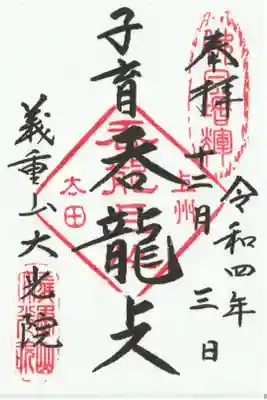 奉拝
令和四年
十二月三日
子育呑龍上人
義重山大光院
上州
太田